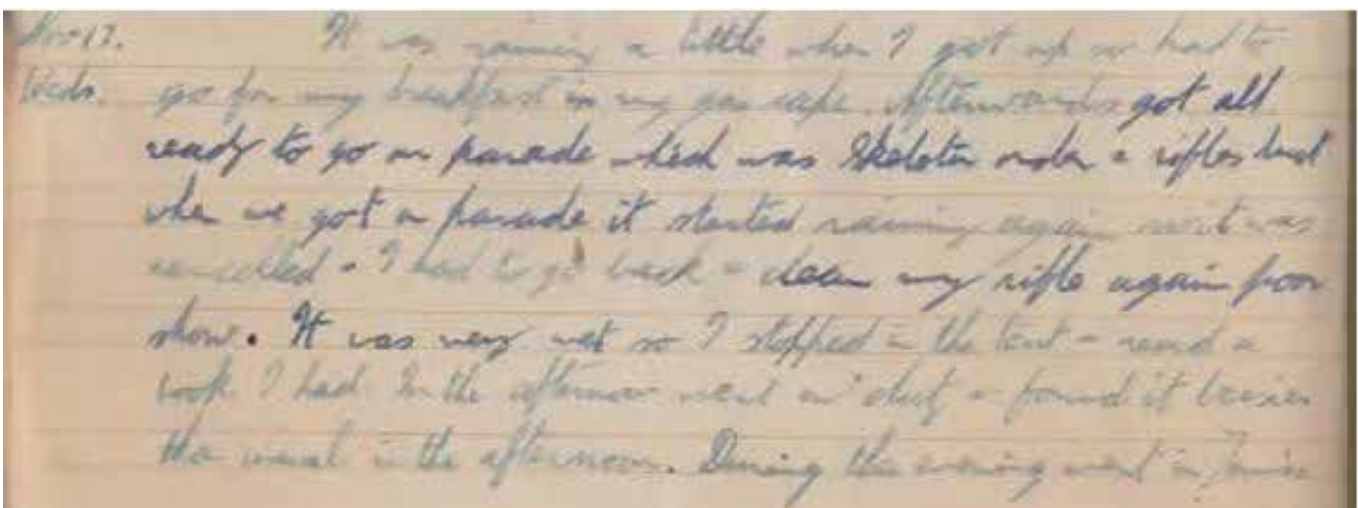 Nov 17. It was raining a little when I got up so had to
Weds. go for my breakfast in my gas cape. Afterwards got all
ready to go on parade which was Skeleton order & rifles but
when we got on parade it started raining again so it was
cancelled. I had to go back & clean my rifle again poor
show. It was very wet so I stopped in the tent & read a
book I had. In the afternoon went on duty & found it busier
than usual in the afternoon. During the evening went in